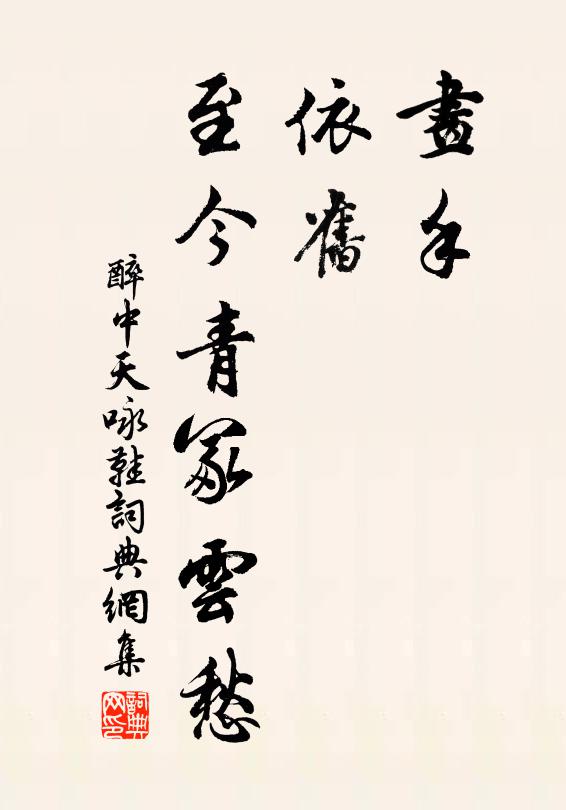 畫手
依舊
至今青冢雲愁
醉中天詠鞋詞典網集
詞典网印